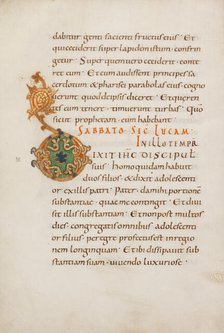 dabitur genti facienti fructus eius · Et
qui ceciderit super lapidem istum · confrin
getur · Super quem vero ceciderit · conte
ret eum · Et cum audissent principes sa
cerdotum & pharisei parabolas eius · cogno
verunt quod de ipsis diceret · Et queren
tes eum tenere · timuerunt turbas · Quia
sicut prophetam · eum habebant ·
SABBATO SEC LUCAM ·
IN ILLO TEMPR
DIXIT IHC DISCIPUL
suis · homo quidam habuit
duos filios · & dixit adolescenti
or ex illis patri · Pater · da mihi portione
substantiae · quae me contingit · Et divi
sit illis substantiam · Et non post multos
dies · congregatis omnibus · adolescenti
or filius · peregre profectus est in regio
nem longinquam · Et ibi dissipavit sub
stantiam suam · vivendo luxuriose ·